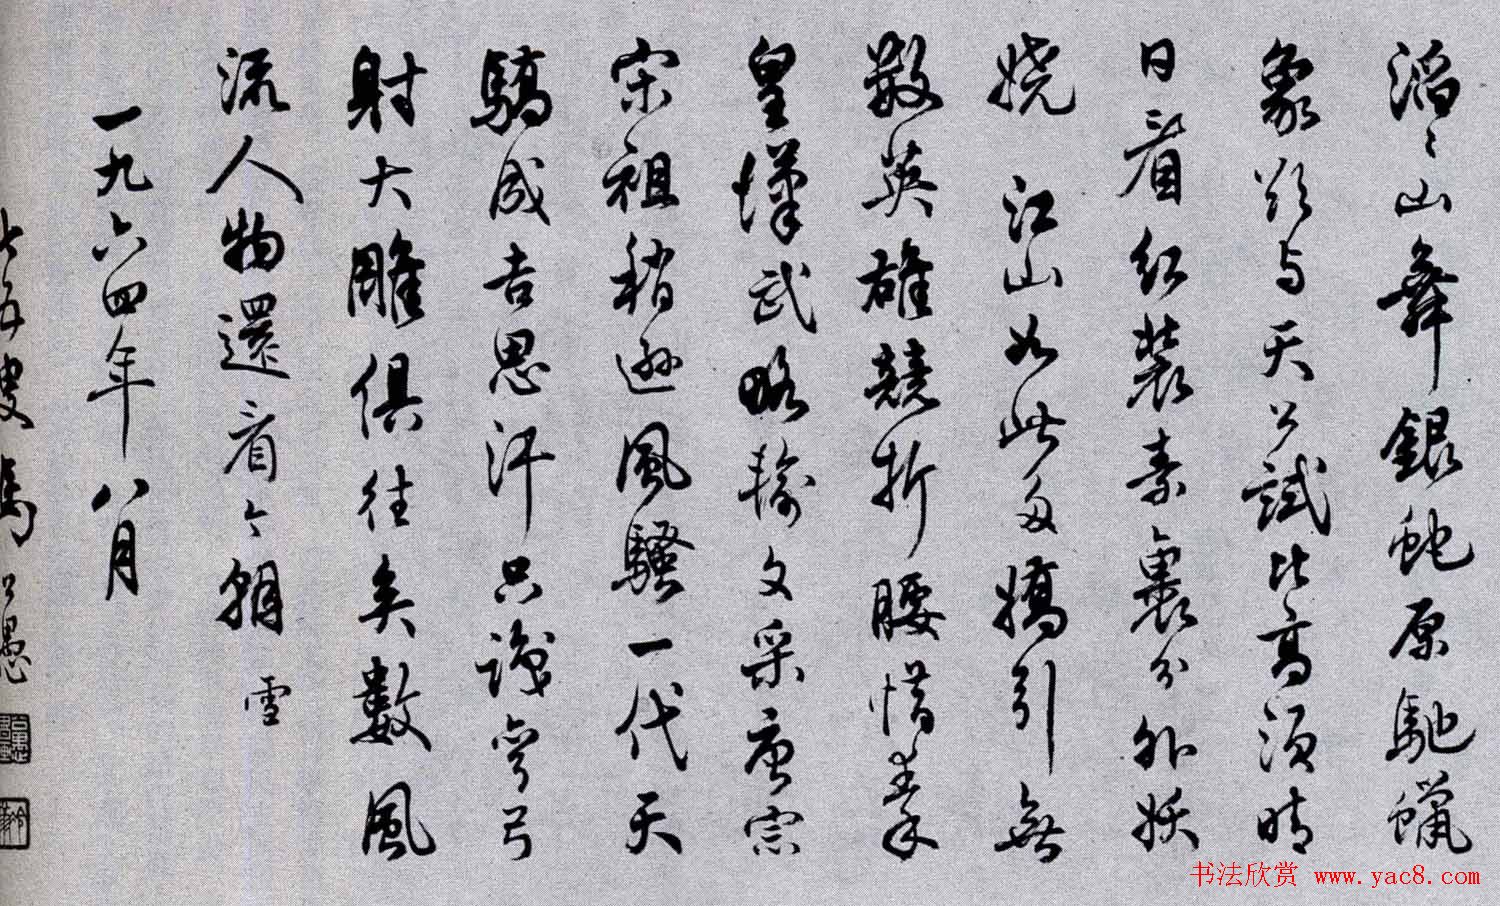 滔〻山舞銀蛇原馳蠟
象欲与天公試比高須晴
日看红裝素裹分外妖
娆江山如此多嬌引無
數英雄競折腰惜秦
皇漢武略输文采唐宗
宋祖稍遜風騷一代天
驕成吉思汗只識弯弓
射大雕俱往矣數風
流人物還看今朝 雪
一九六四年八月
馬公愚
书法欣赏 www.yac8.com